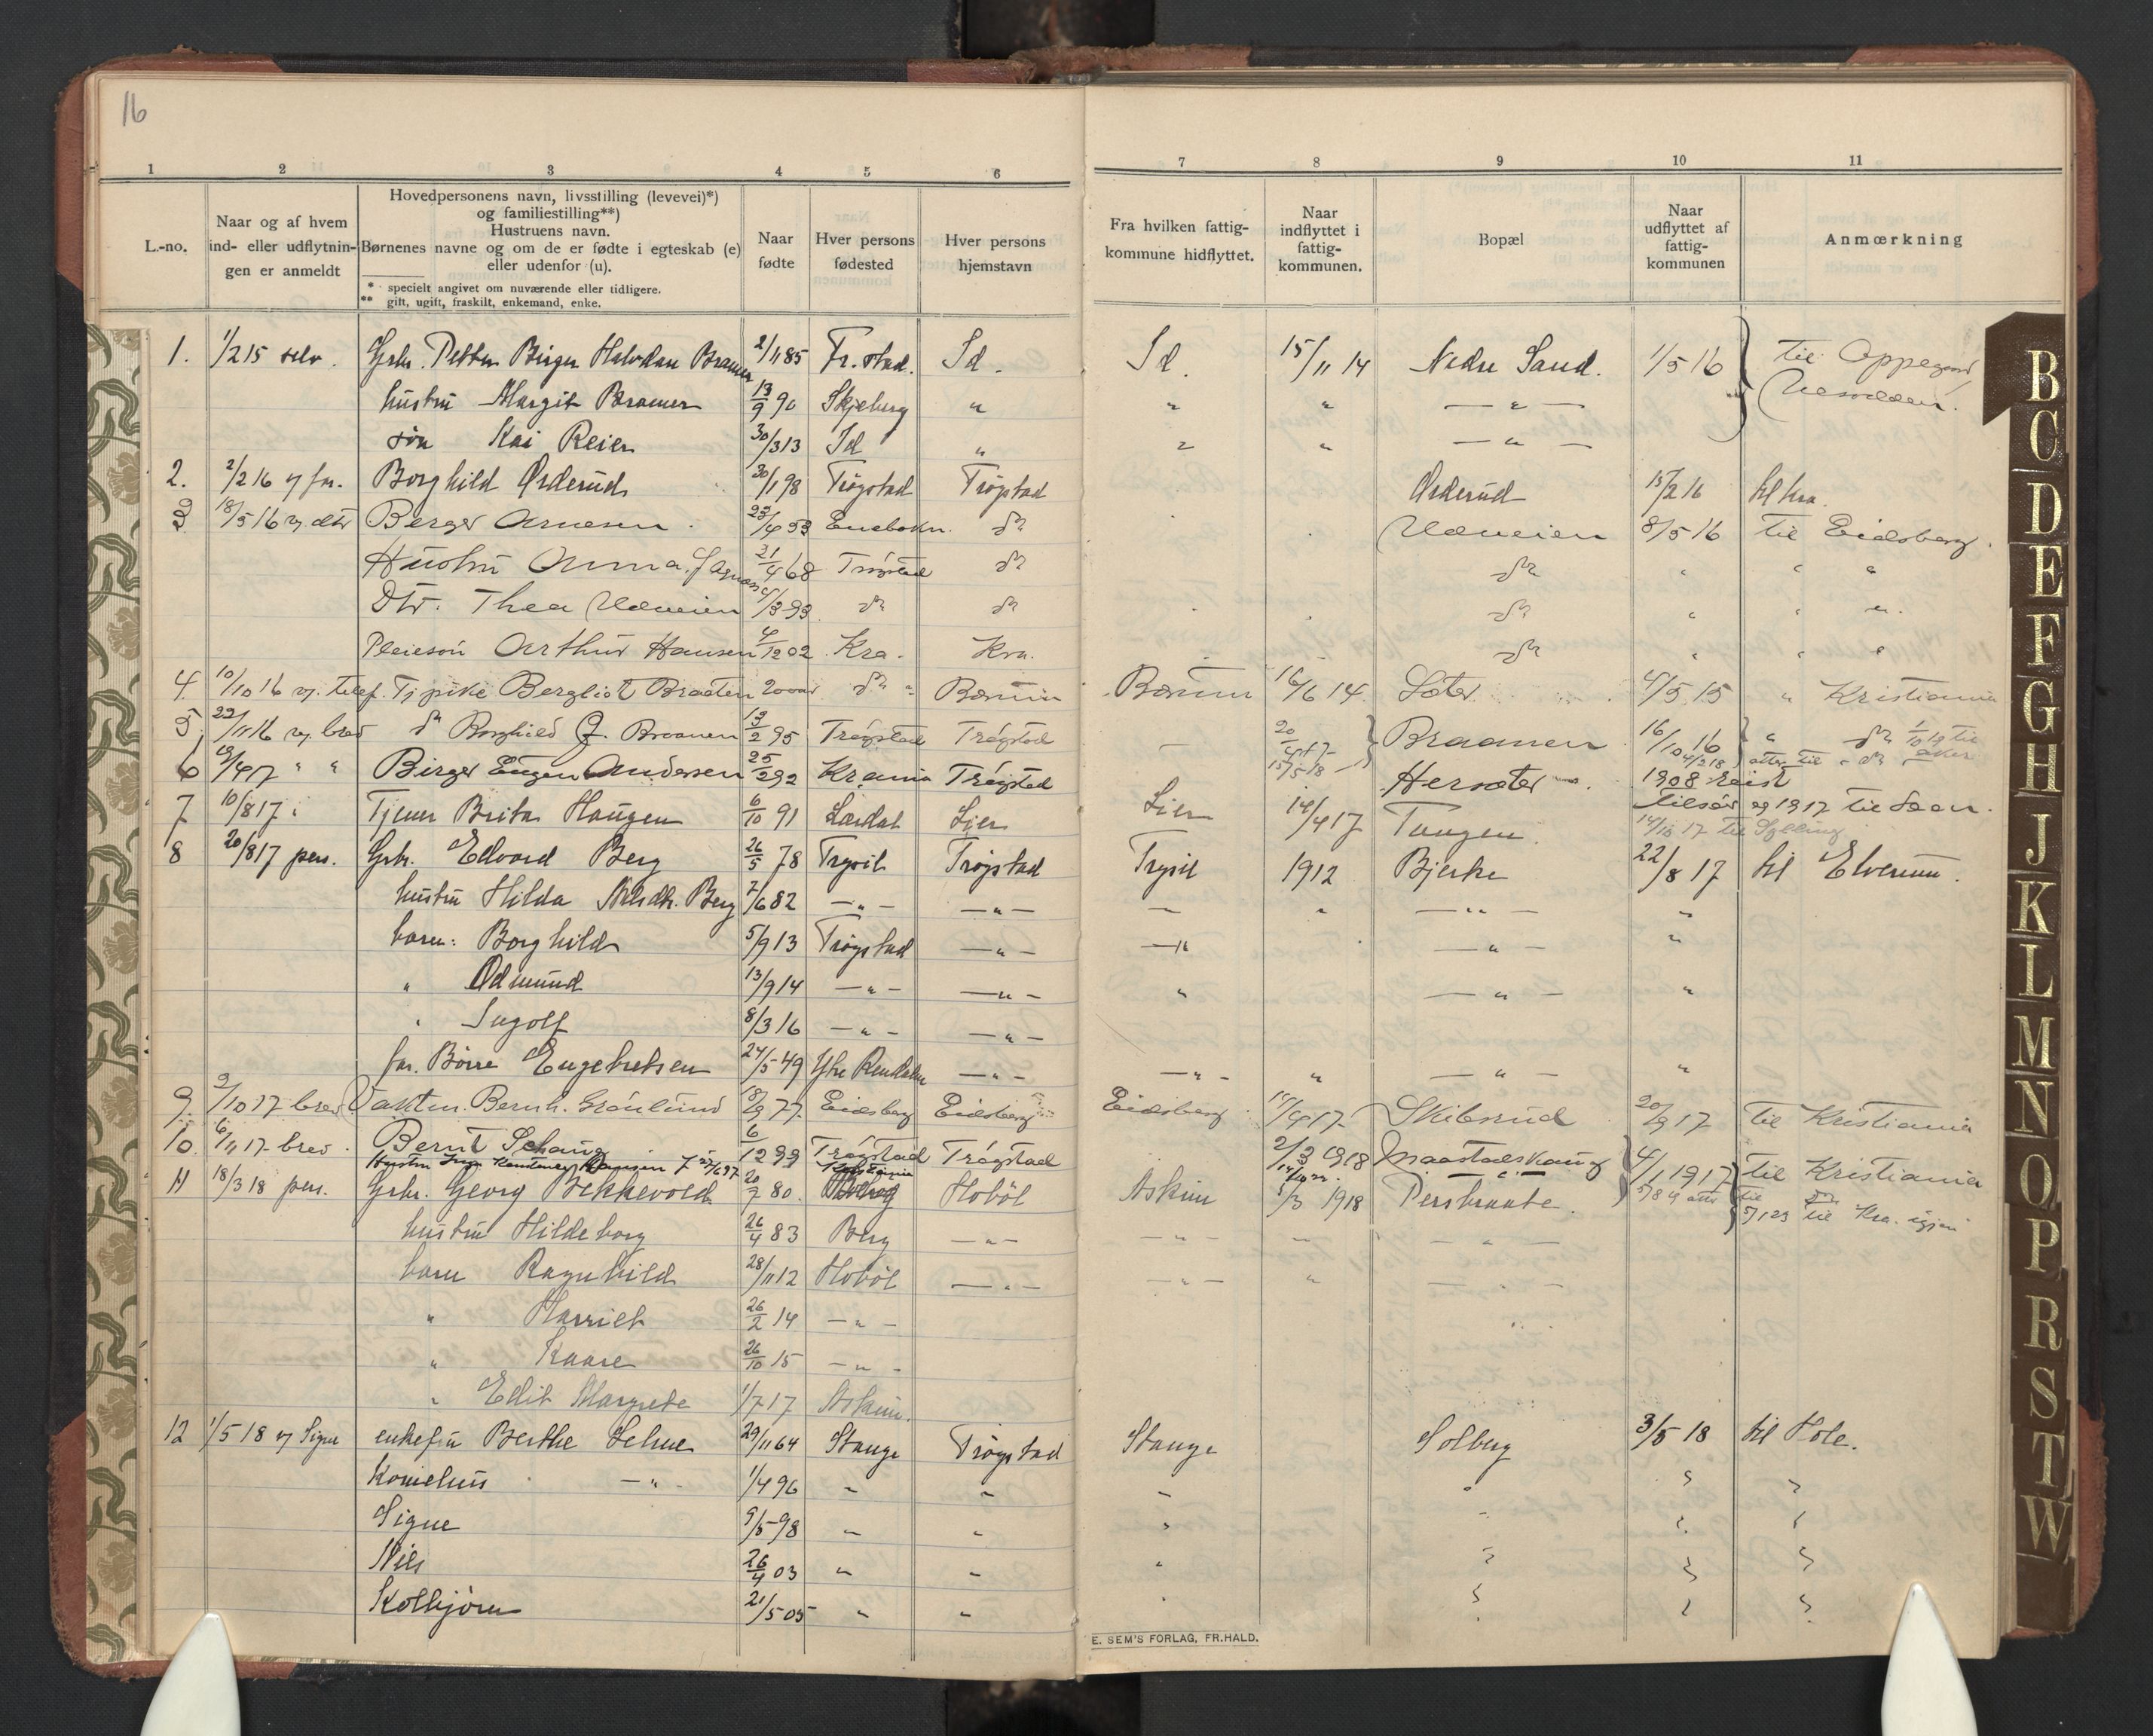 16
1 2 3 4 5 6 7 8 9 10 11
L.-no.
Naar og af hvem
ind- eller udflytnin-
gen er anmeldt
Hovedpersonens navn, livsstilling (levevei)*)
og familiestilling**)
Hustruens navn.
Børnenes navne og om de er fødte i egteskab (e)
eller udenfor (u).
* specielt angivet om nuværende eller tidligere.
** gift, ugift, fraskilt, enkemand, enke.
Naar
fødte
Hver persons
fødested
Hver persons
hjemstavn
Fra hvilken fattig-
kommune hidflyttet.
Naar
indflyttet i
fattig-
kommunen.
Bopæl
Naar
udflyttet af
fattig-
kommunen
Anmœrkning
1. 1/2 15 selv. Grbr. Petter Birger Halvdan Bramer 2/11 85 Fr.stad. Id. Id. 15/11 14 Nedre Sand. 1/5 16 til Oppegård
hustru Margit Bramer 13/9 90 Skjeberg " " " — " —
søn Kai Reier 30/3 13 Id " " " — " —
2. 2/2 16 v/ far. Borghild Orderud 30/1 98 Trøgstad Trøgstad Orderud 15/2 16 til Kra.
3 18/5 16 v/ dtr Berger Arnesen 23/4 53 Enebakk. do Udeneien 8/5 16 til Eidsberg.
Hustru Anna 21/4 68 Trøgstad do do " " "
Dtr. Thea Udeneien 5/3 93 do do do " " "
Pleiesøn Arthur Hansen 4/12 02 Kra. Kra. do " " "
4. 10/10 16 v. telef. Tj pike Bergliot Braaten 20 aar do Bærum Bærum 16/6 14 Sæter 4/5 15 " Kristiania
5 22/11 16 v. brev do Borghild J. Braanen 13/2 95 Trøgstad Trøgstad — 20/4 17 Braanen 16/10 16 " do 1/10 19 til Aker
15/5 18 4/2 18 atter til " do
6 19/4 17 " " Birger Eugen Andersen 25/2 92 Krania Trøgstad Hersæter 1908 reist
tilsøs og 1917 til
7 10/8 17 " Tjener Brita Haugen 6/10 91 Lærdal Lier Lier 14/4 17 Tangen 14/10 17 til Sylling
8 20/8 17 pers. Grbr. Edvard Berg 26/5 78 Trysil Trøgstad Trysil 1912 Bjerke 22/8 17 til Elverum.
hustru Hilda Berg 7/6 82 — " — — " — — " — " — "
barn: Borghild 5/9 13 Trøgstad — " — — " — " — "
" Odmund 13/9 14 — " — — " — " — " — "
" Ingolf 8/3 16 — " — — " —
far. Børre Engebretsen 24/5 49 Ytre Rendalen — " — — " — " — " — "
9. 2/10 17 brev Vaktm. Bernh. Grønlund 18/9 77 Eidsberg Eidsberg Eidsberg 15/4 17 Skibsrud 20/9 17 til Kristiania
10. 6/11 17 brev. Bernt Schaug 6/12 99 Trøgstad Trøgstad 2/3 1918 Maastadskaug 4/1 1917 til Kristiania
Hustru Hansen f 27/6 97 Kristiania — " — 5/8 19 atter til do
5/1 23 til Kra. igjen
11 18/3 18 pers. Grbr. Georg Bekkevold 20/7 80. Hobøl Askim 5/3 1918 Persbraate.
hustru Hildeborg 26/4 83 Berg — " — — " — " — " —
barn Ragnhild 28/11 12 Hobøl — " — — " — "
" Harriet 26/2 14 — " —
" Kaare 26/10 15 — " —
" Edit Margrete 1/7 17 Askim.
12 1/5 18 v/ Signe enkefru Berthe Selme 29/11 64 Stange Trøgstad Stange Solberg 3/5 18 til Hole.
Kornelius — " — 1/4 96 " " " " " "
Signe 9/5 98 " " " " " "
Nils 26/4 03 " " " " " "
Kolbjørn 21/5 05 " " " " " "
E. SEM'S FORLAG, FR.HALD.
B
C
D
E
F
G
H
J
K
L
M
N
O
P
R
S
T
W